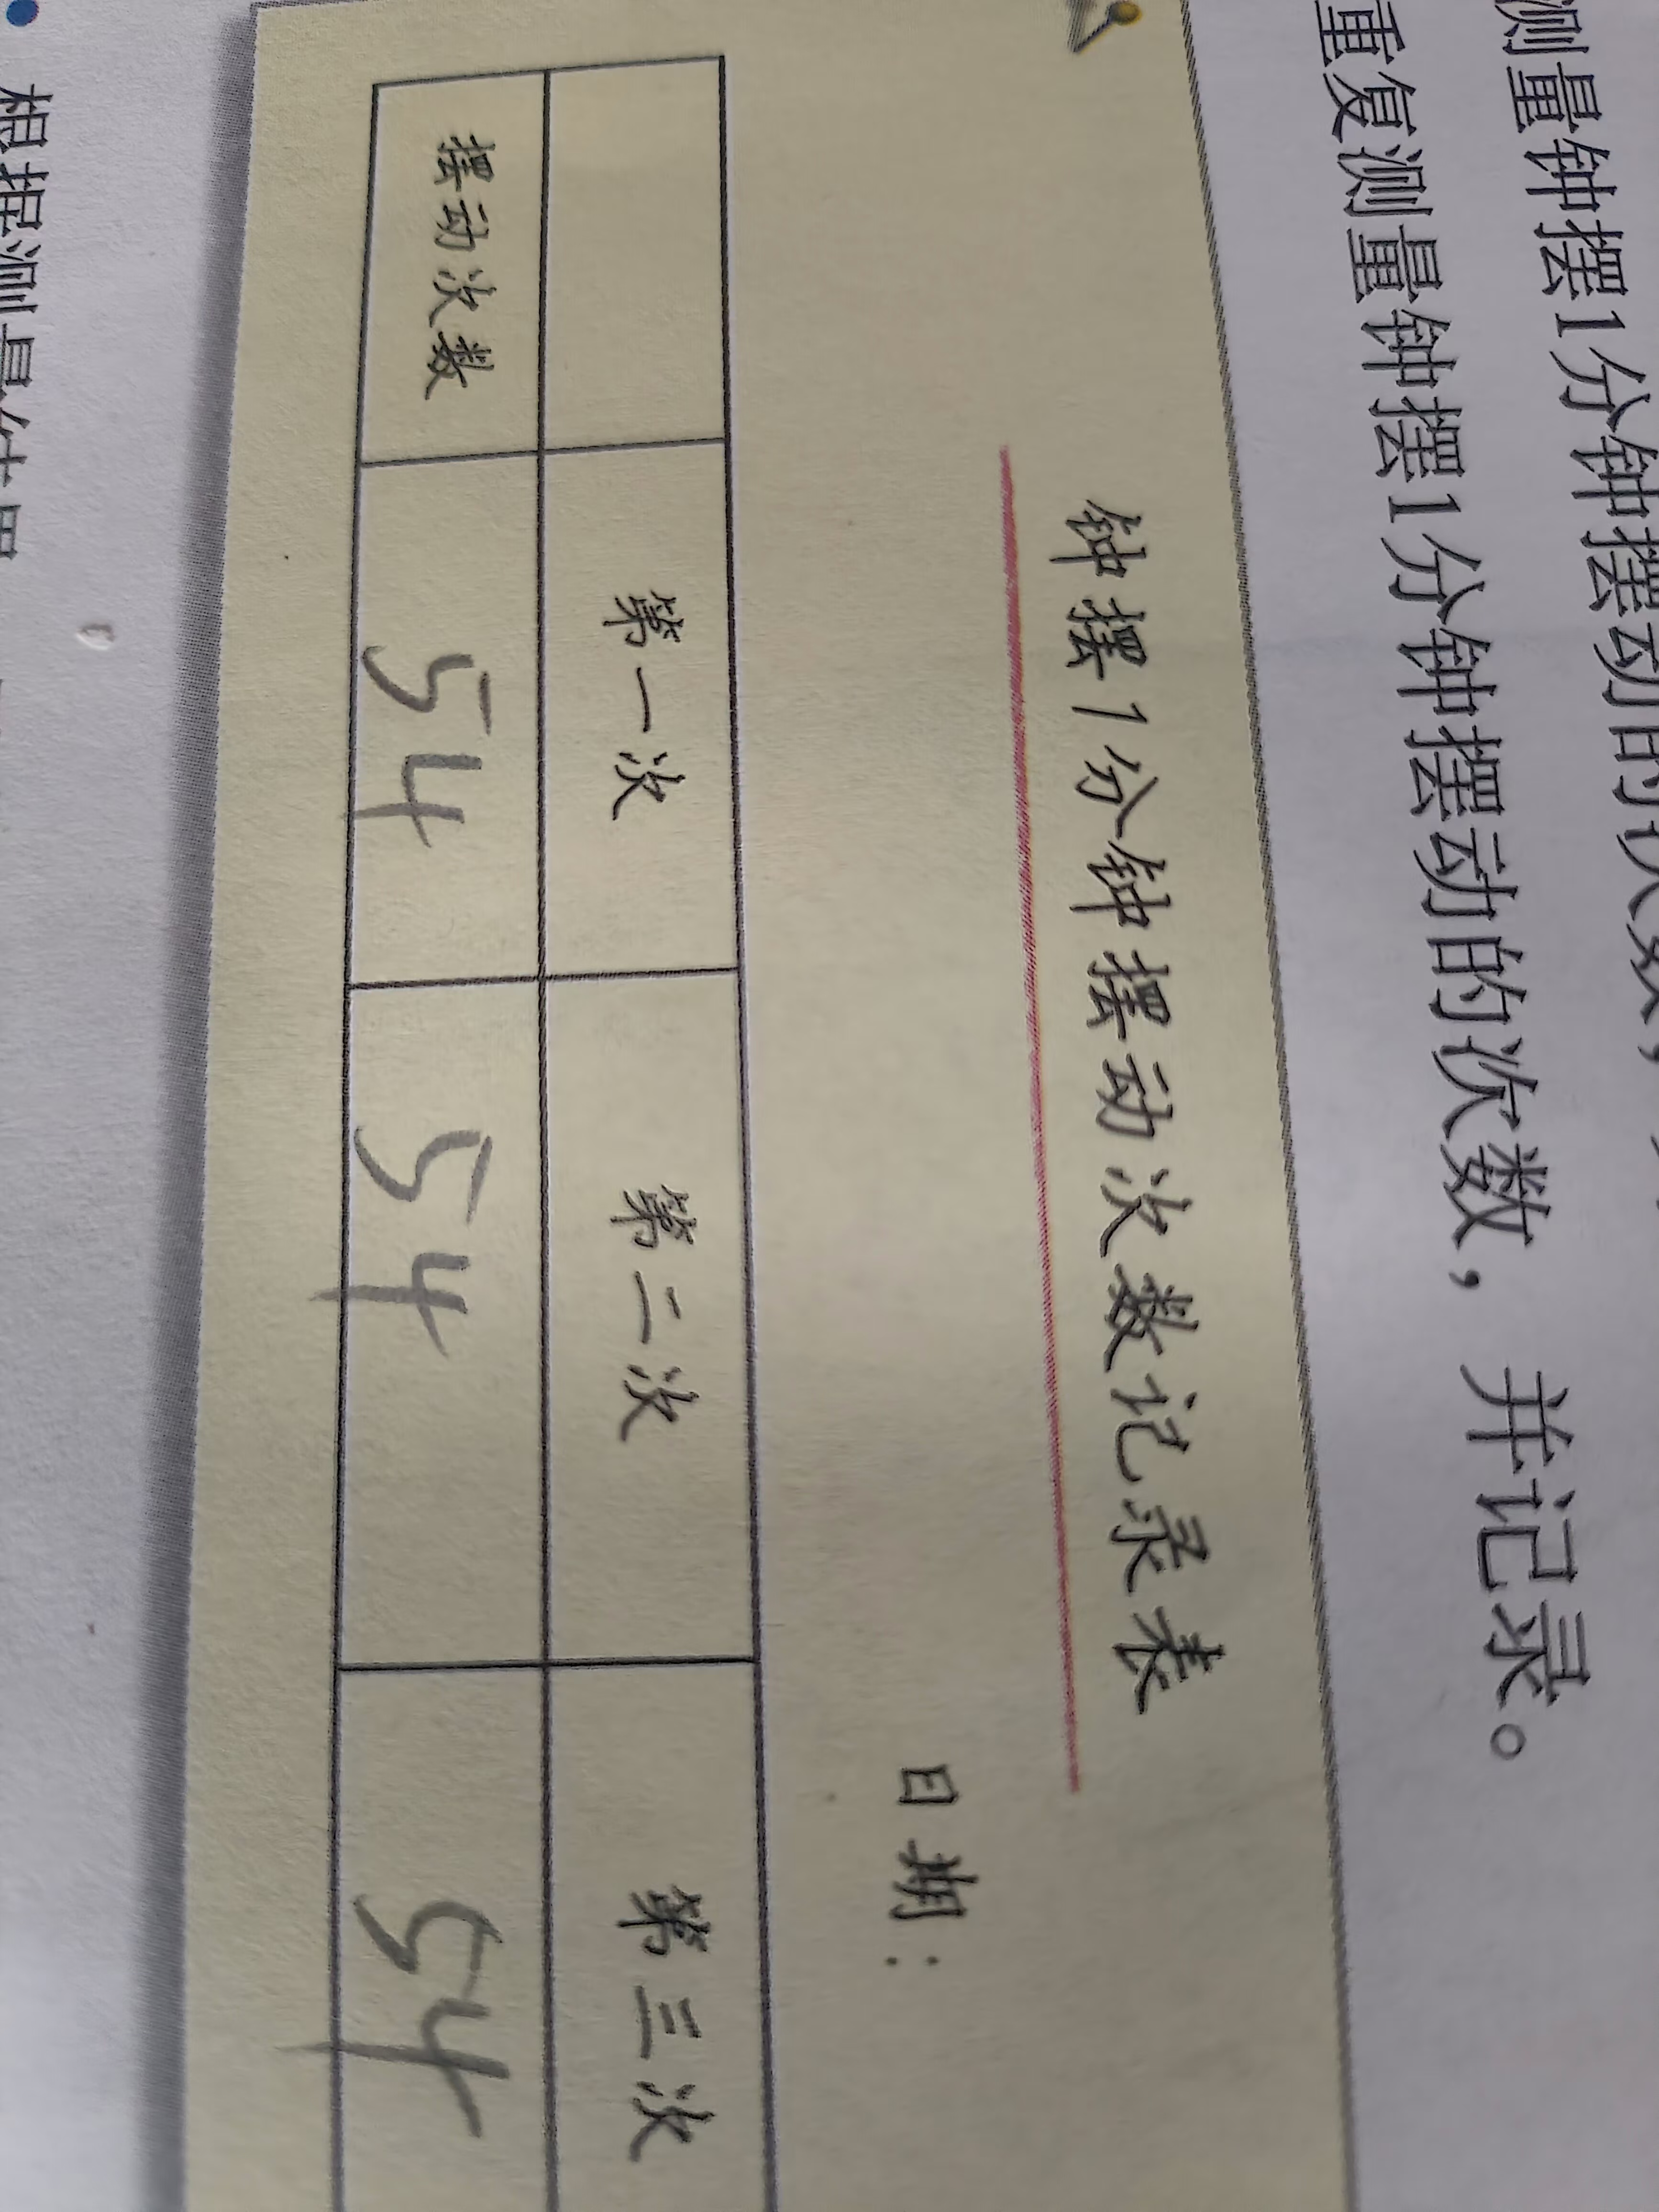 测量钟摆1分钟摆动的次数，
重复测量钟摆1分钟摆动的次数，并记录。
钟摆1分钟摆动次数记录表
日期：
第一次 第二次 第三次
摆动次数 54 54 54
根据测量结果